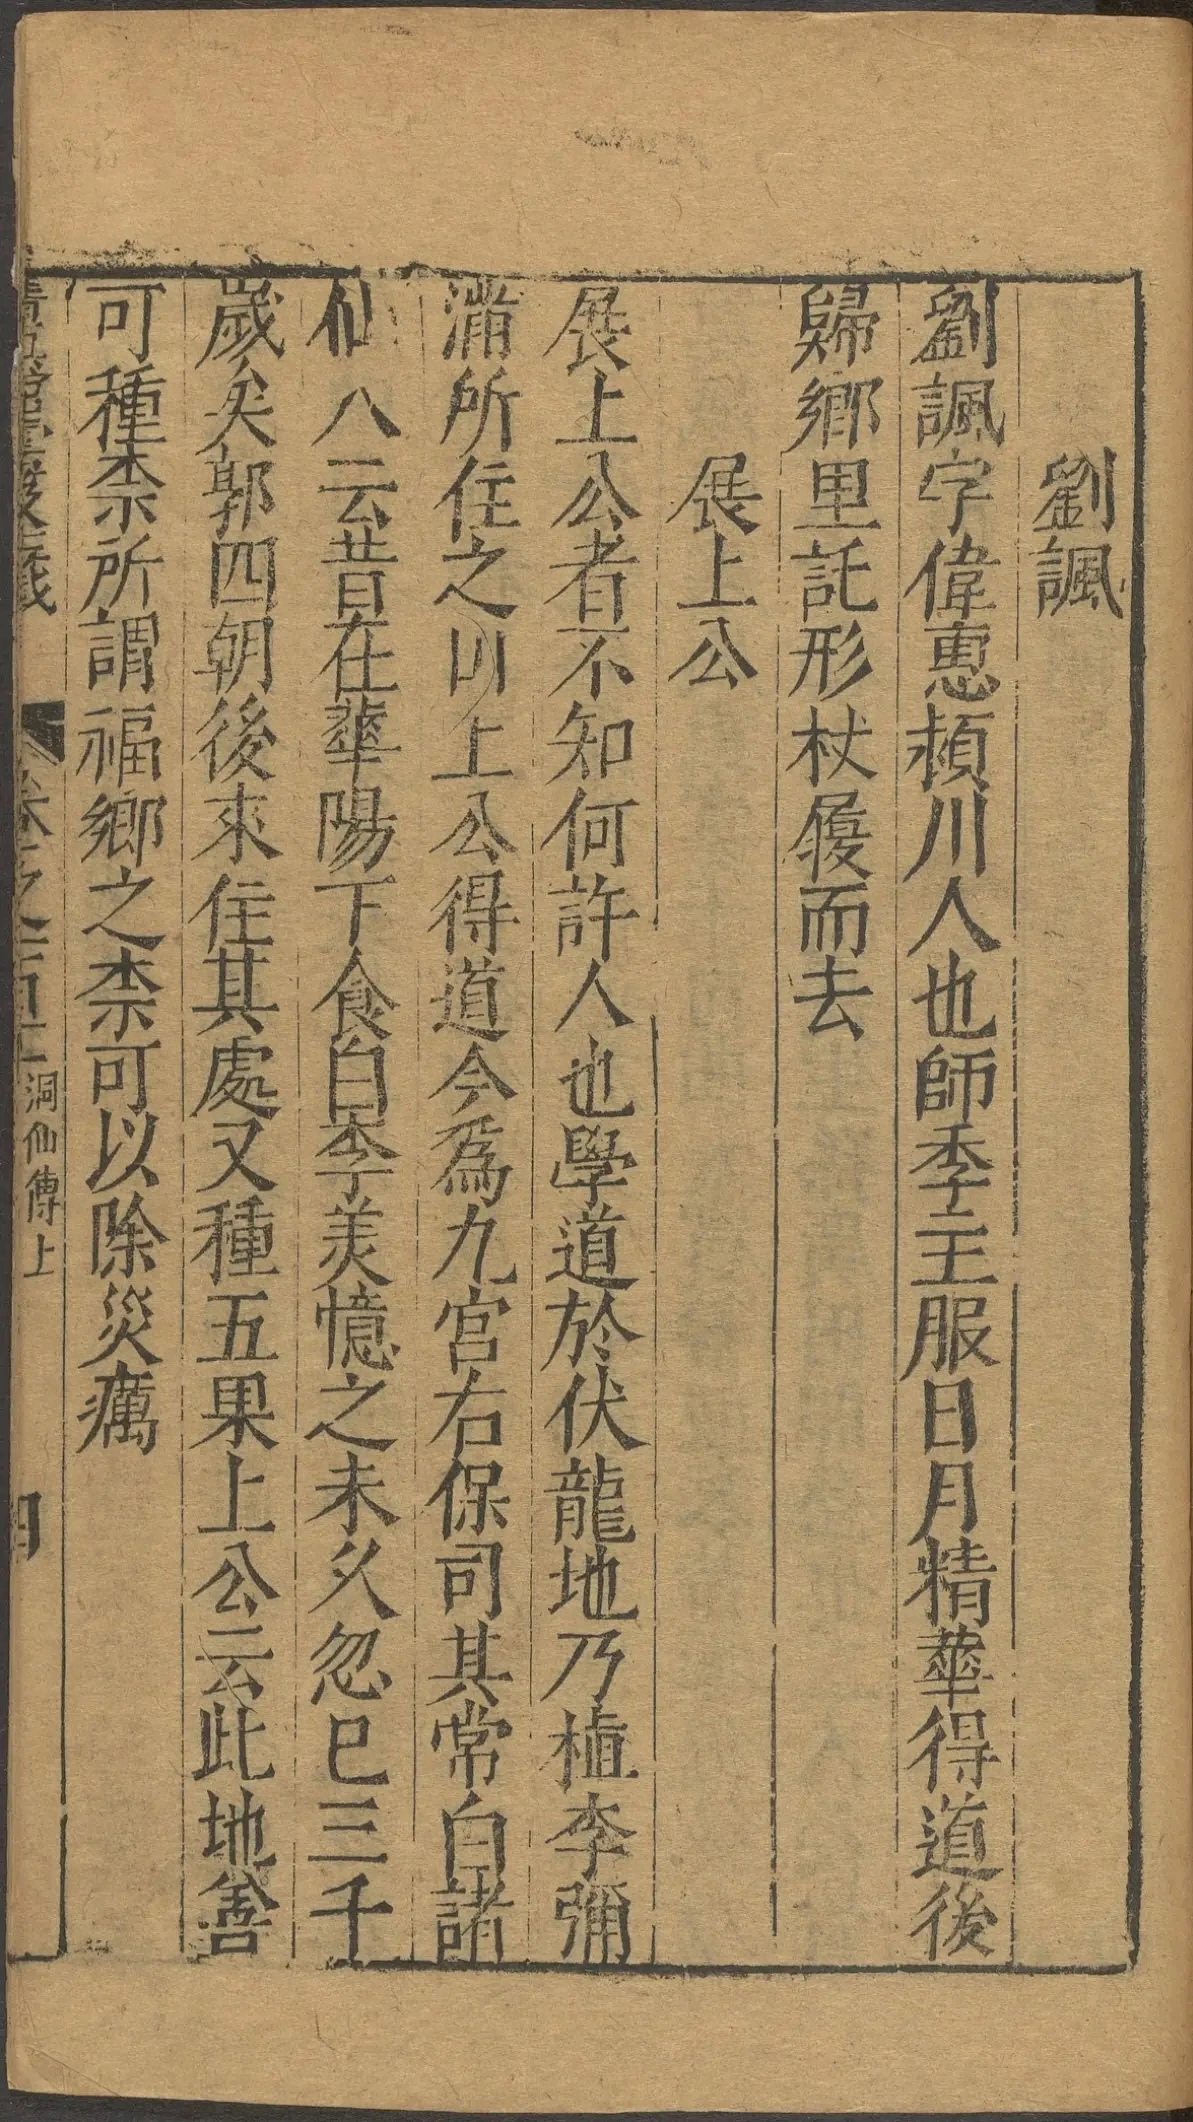 劉諷
劉諷字偉惠潁川人也師季主服日月精華得道後
歸鄉里託形杖履而去
展上公
展上公者不知何許人也學道於伏龍地乃植李彌
滿所住之山上公得道今爲九宮右保司其常白諸
仙人云昔在華陽下食白李美憶之未久忽已三千
歲矣郭四朝後來住其處又種五果上公云此地善
可種柰所謂福鄉之柰可以除災癘
卷之一百十 洞仙傳上
四